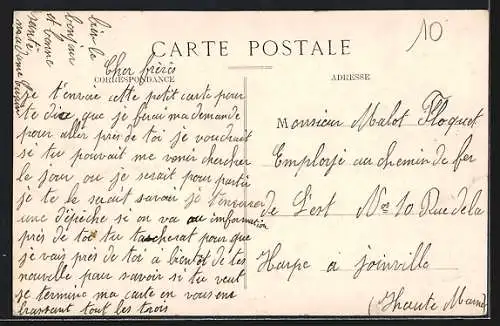 10
bien le
bonjour
et bonne
santé
madame
CARTE POSTALE
CORRESPONDANCE
ADRESSE
Cher frères
t'envoie cette petit carte pour
te dice que je ferai ma demande
pour aller près de toi je voudrait
si tu pouvait me venir chercher
le jour ou je serait pour partir
je te le serait savoir je t'enverrai
une dépèche si on va au information
près de toi tu tacherat pour que
je vais près de toi a bientôt de tes
nouvelle pour savoir si tu veut
je termine ma carte en vous en
brassant tout les trois
Monsieur Malot Floquet
Employé au chemin de fer
de L'est No 10 Rue de la
Harpe à Joinville
(Haute Marne)